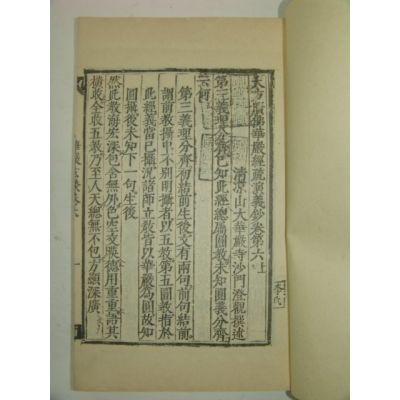 大方廣佛華嚴經疏演義鈔卷第六上
清涼山大華嚴寺沙門澄觀撰述
第三義理分齊已知此經總屬圓教未知圓義分齊
云何
第三義理分齊初結前生後文有兩句前句結前
謂前教攝中不別明攝者以五教第五圓教指於
此經義當已攝況諸師立教皆以華嚴為圓故知
圓攝後未知下一句生後
然此教海宏深包含無外色空交映德用重重語其
橫收全收五教乃至人天總無不包方顯深廣